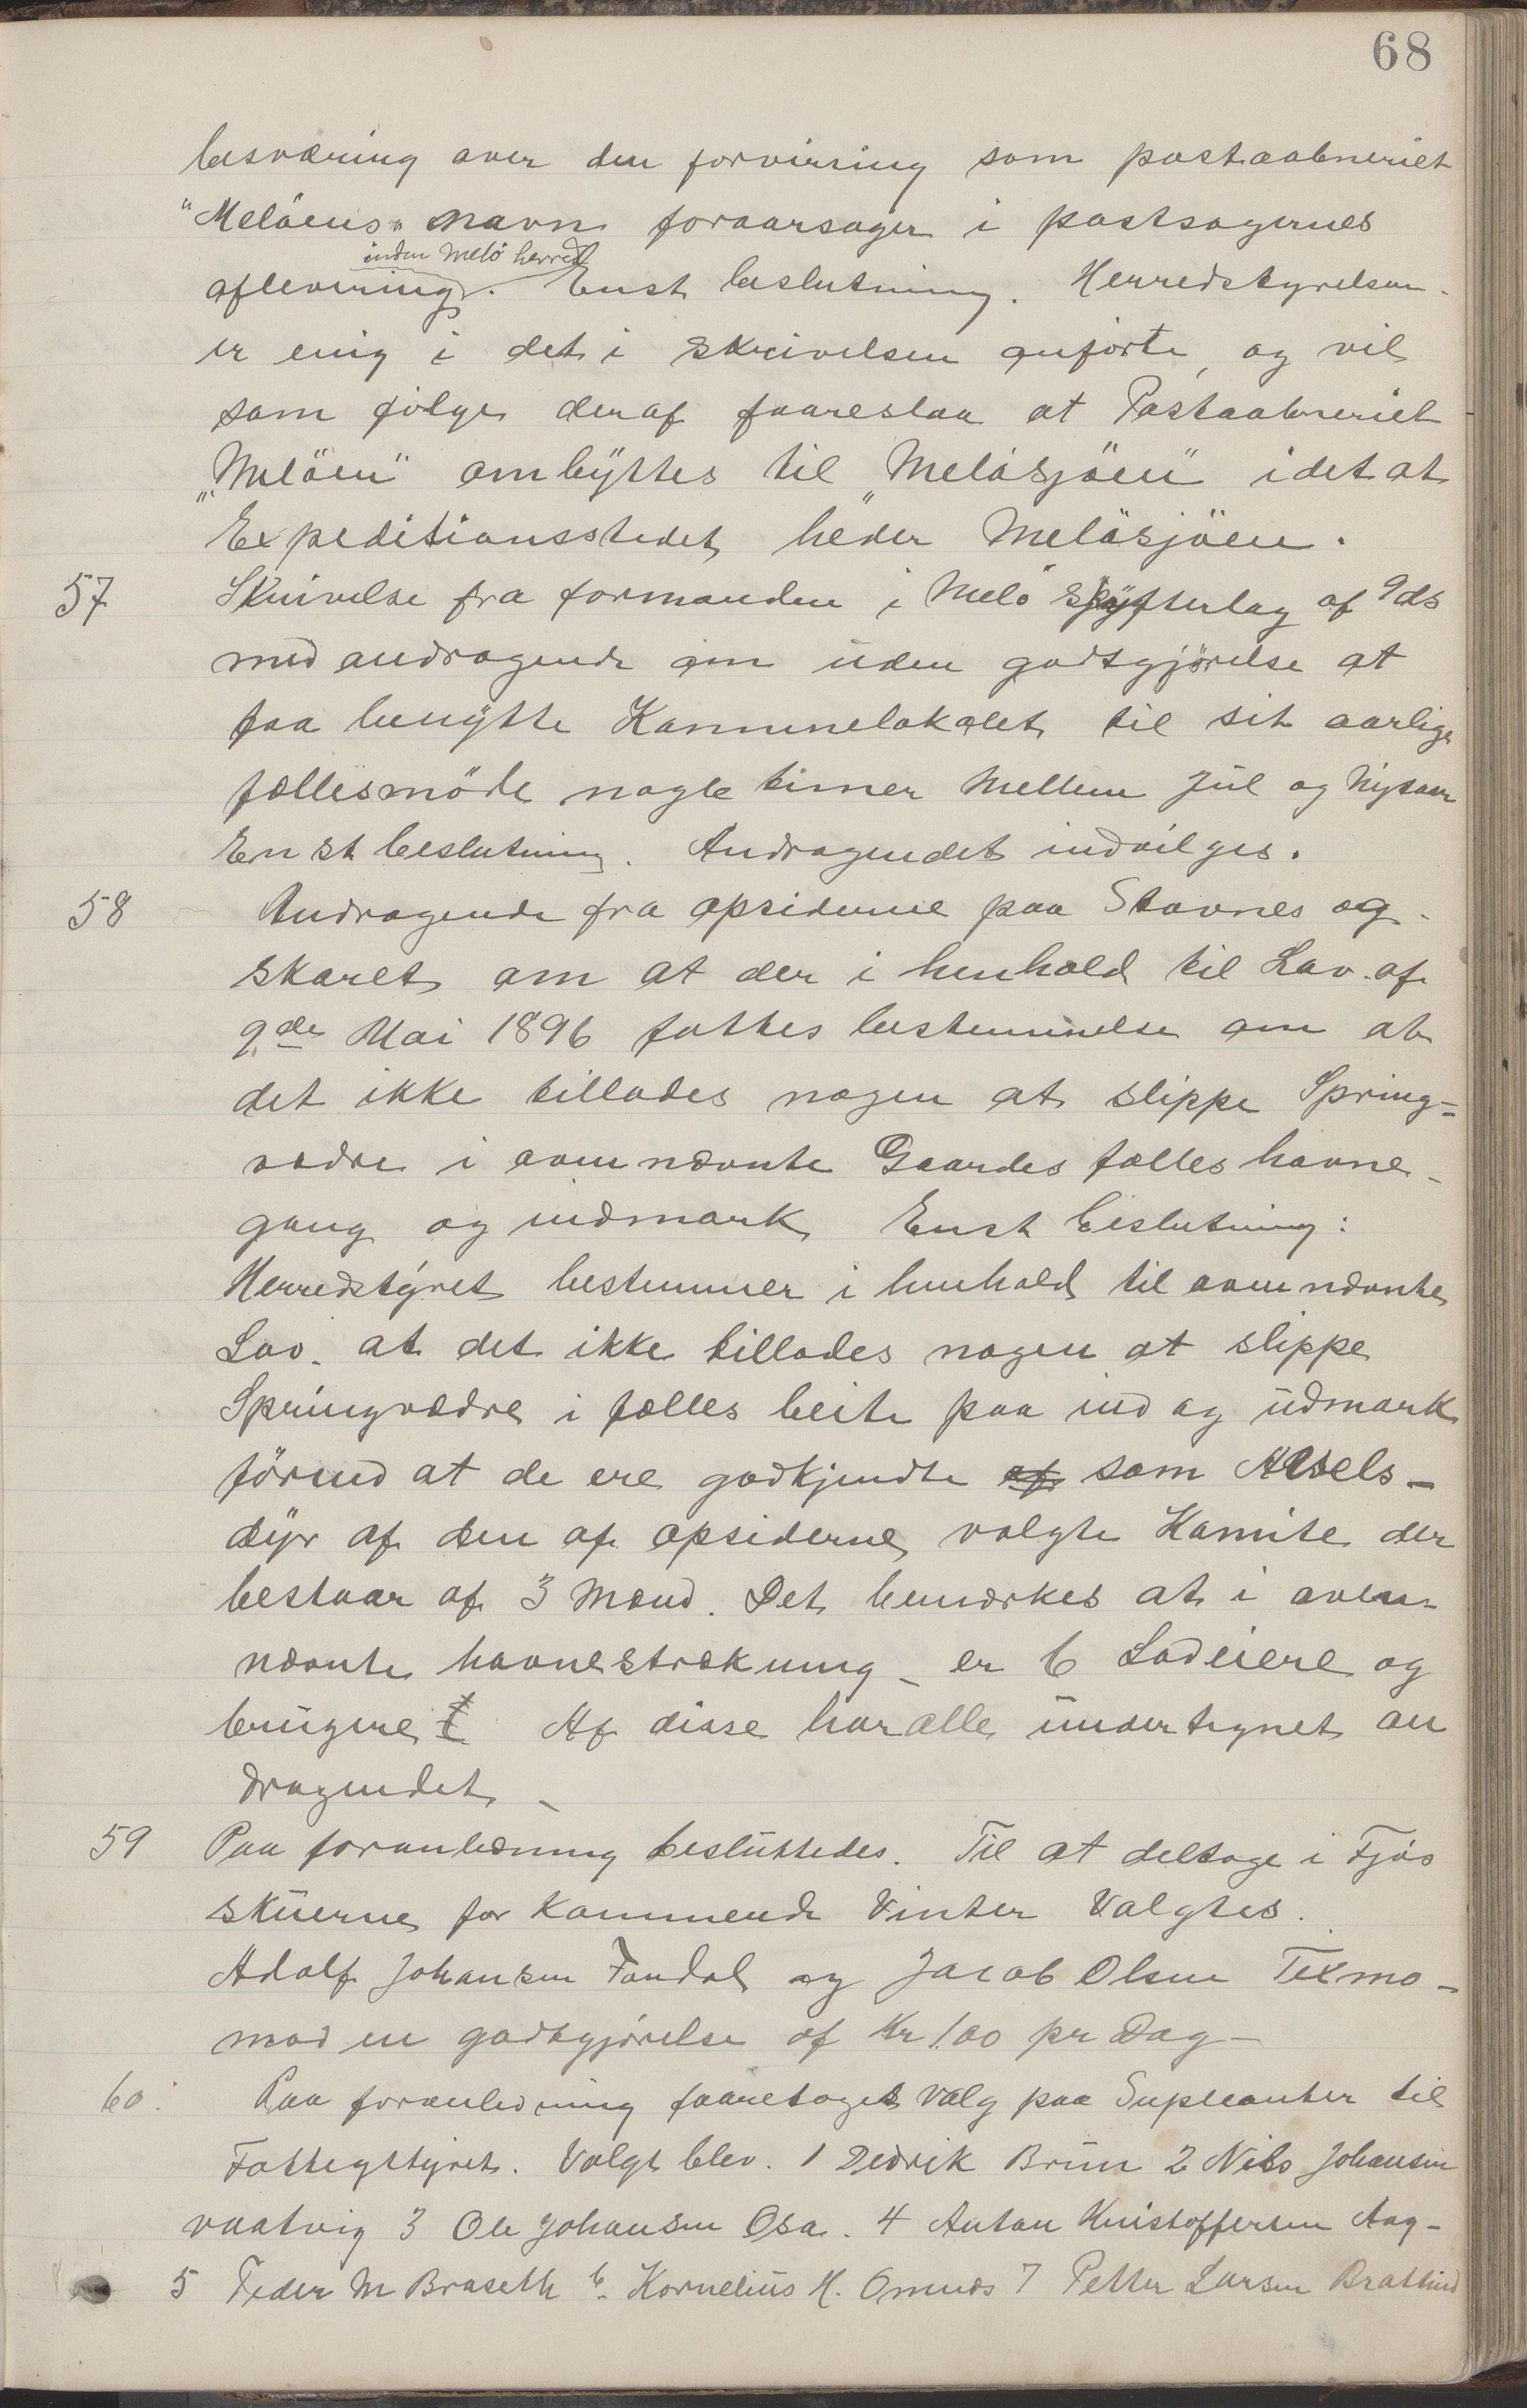 68
besværing over den forvirring som postaabneriet
"Melöens" navn foraarsager i postsagernes
inden Melö herred
aflevering. Enst beslutning. Herredstyrelsen
er enig i det i skrivelsen anførte, og vil
som følge deraf foareslaa at Postaabneriet
"Melöen" ombyttes til "Melösjöen" idet at
Expeditionsstedet heder Melösjöen.
57 Skrivelse fra formanden i Melö skytterlag af 9ds
med andragende om uden godtgjörelse at
faa benytte Kommunelokalet til sit aarlige
fællesmöde nogle timer Mellem Jul og Nytaar
Enst beslutning. Andragendet indvilges.
58 Andragende fra opsiderne paa Stavnes og
skaret om at der i henhold til Lov af
9de Mai 1896 fattes bestemmelse om at
det ikke tillades nogen at slippe Spring=
vædre i ovennævnte Gaardes fælles havne-
gang og indmark Enst beslutning:
Herredstyret bestemmer i henhold til ovennævnte
Lov. at det ikke tillades nogen at slippe
Springvædre i fælles beite paa ind og udmark
förend at de ere godkjendte af som Avels-
dyr af den af opsiderne valgte Komite der
bestaar af 3 Mænd. Det bemærkes at i oven-
nævnte havnestrækning - er 6 Lodeiere og
brugere Af disse har alle undertegnet an
dragendet -
59 Paa foranledning besluttedes. Til at deltage i Fjös
skuerne for kommende Vinter Valgtes.
Adolf Johansen Fondal og Jacob Olsen Texmo-
mod en godtgjörelse af Kr 1.00 pr Dag-
60. Paa foranledning foaretoges Valg paa Supleanter til
Fattigstyret. Valgt blev. 1 Dedrik Brun 2 Nils Johansen
vaatvig 3 Ole Johansen Osa. 4 Anton Kristoffersen Aag-
5 Peder M Braseth 6. Kornelius H. Ornæs 7 Petter Larsen Brattind